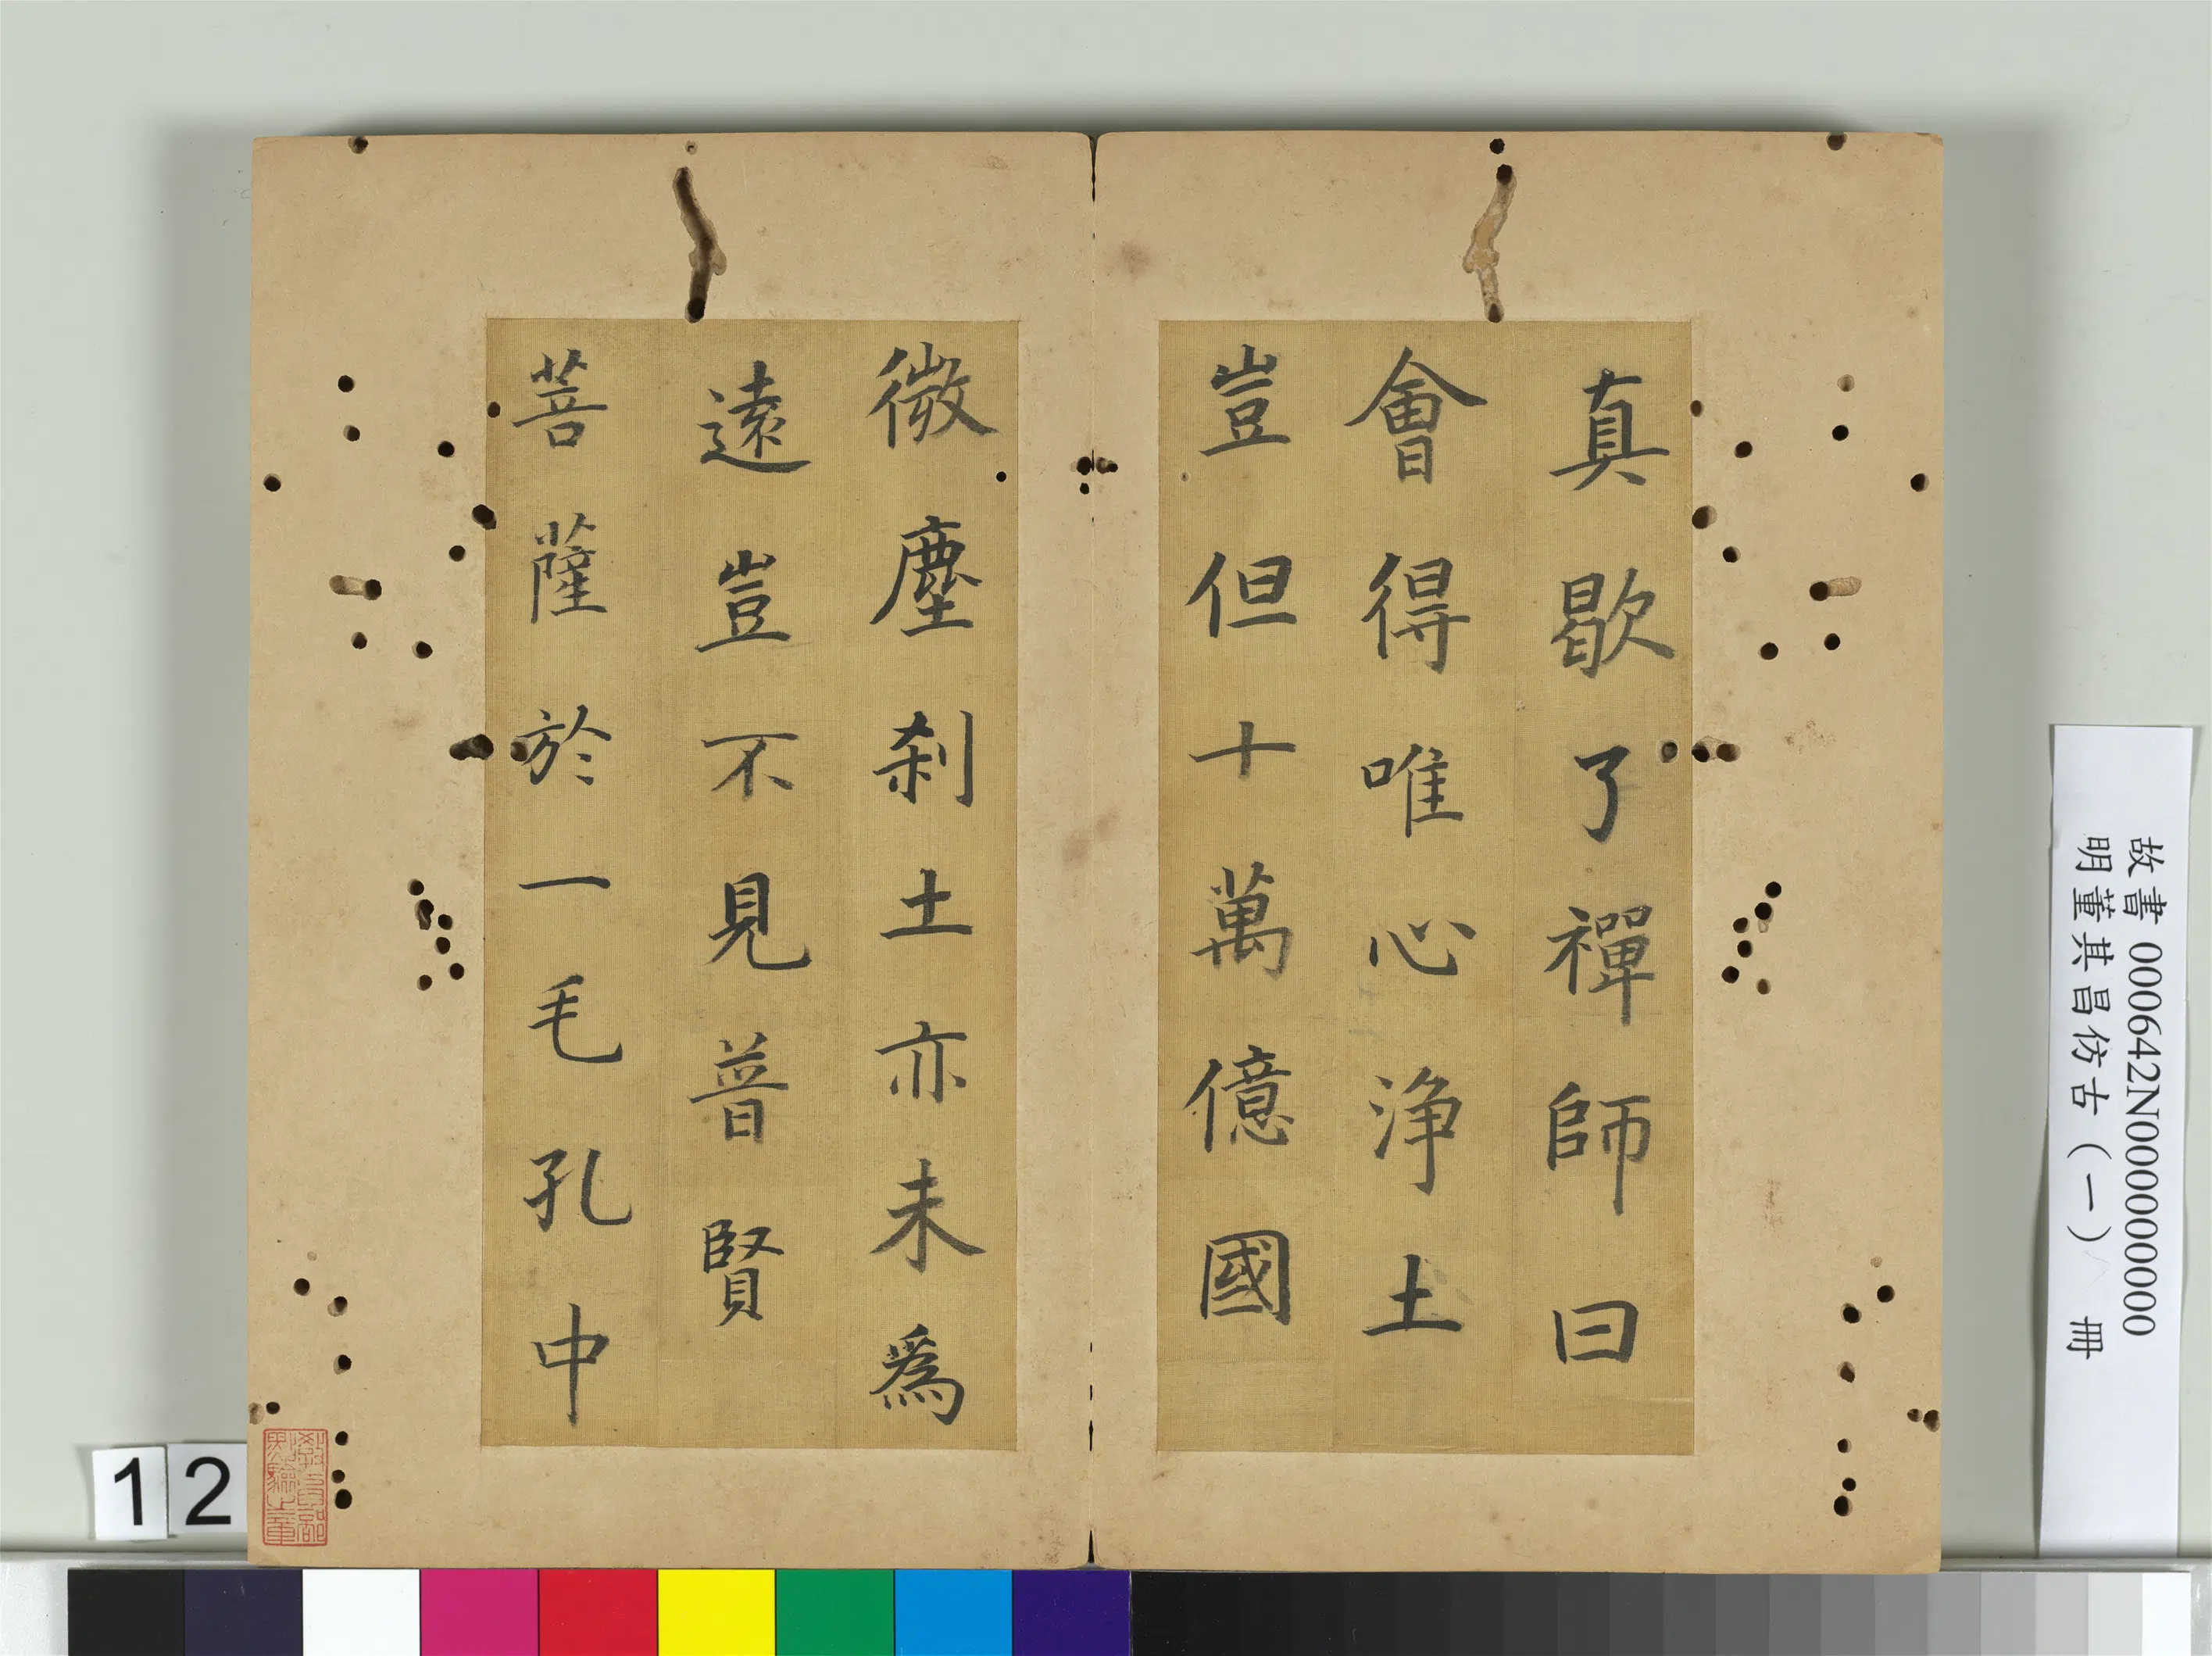 真歇了禪師曰
會得唯心浄土
豈但十萬億國
微塵刹土亦未為
遠豈不見普賢
菩薩於一毛孔中
故書 000642N000000000
明董其昌仿古（一） 冊
12
教育部點驗之章